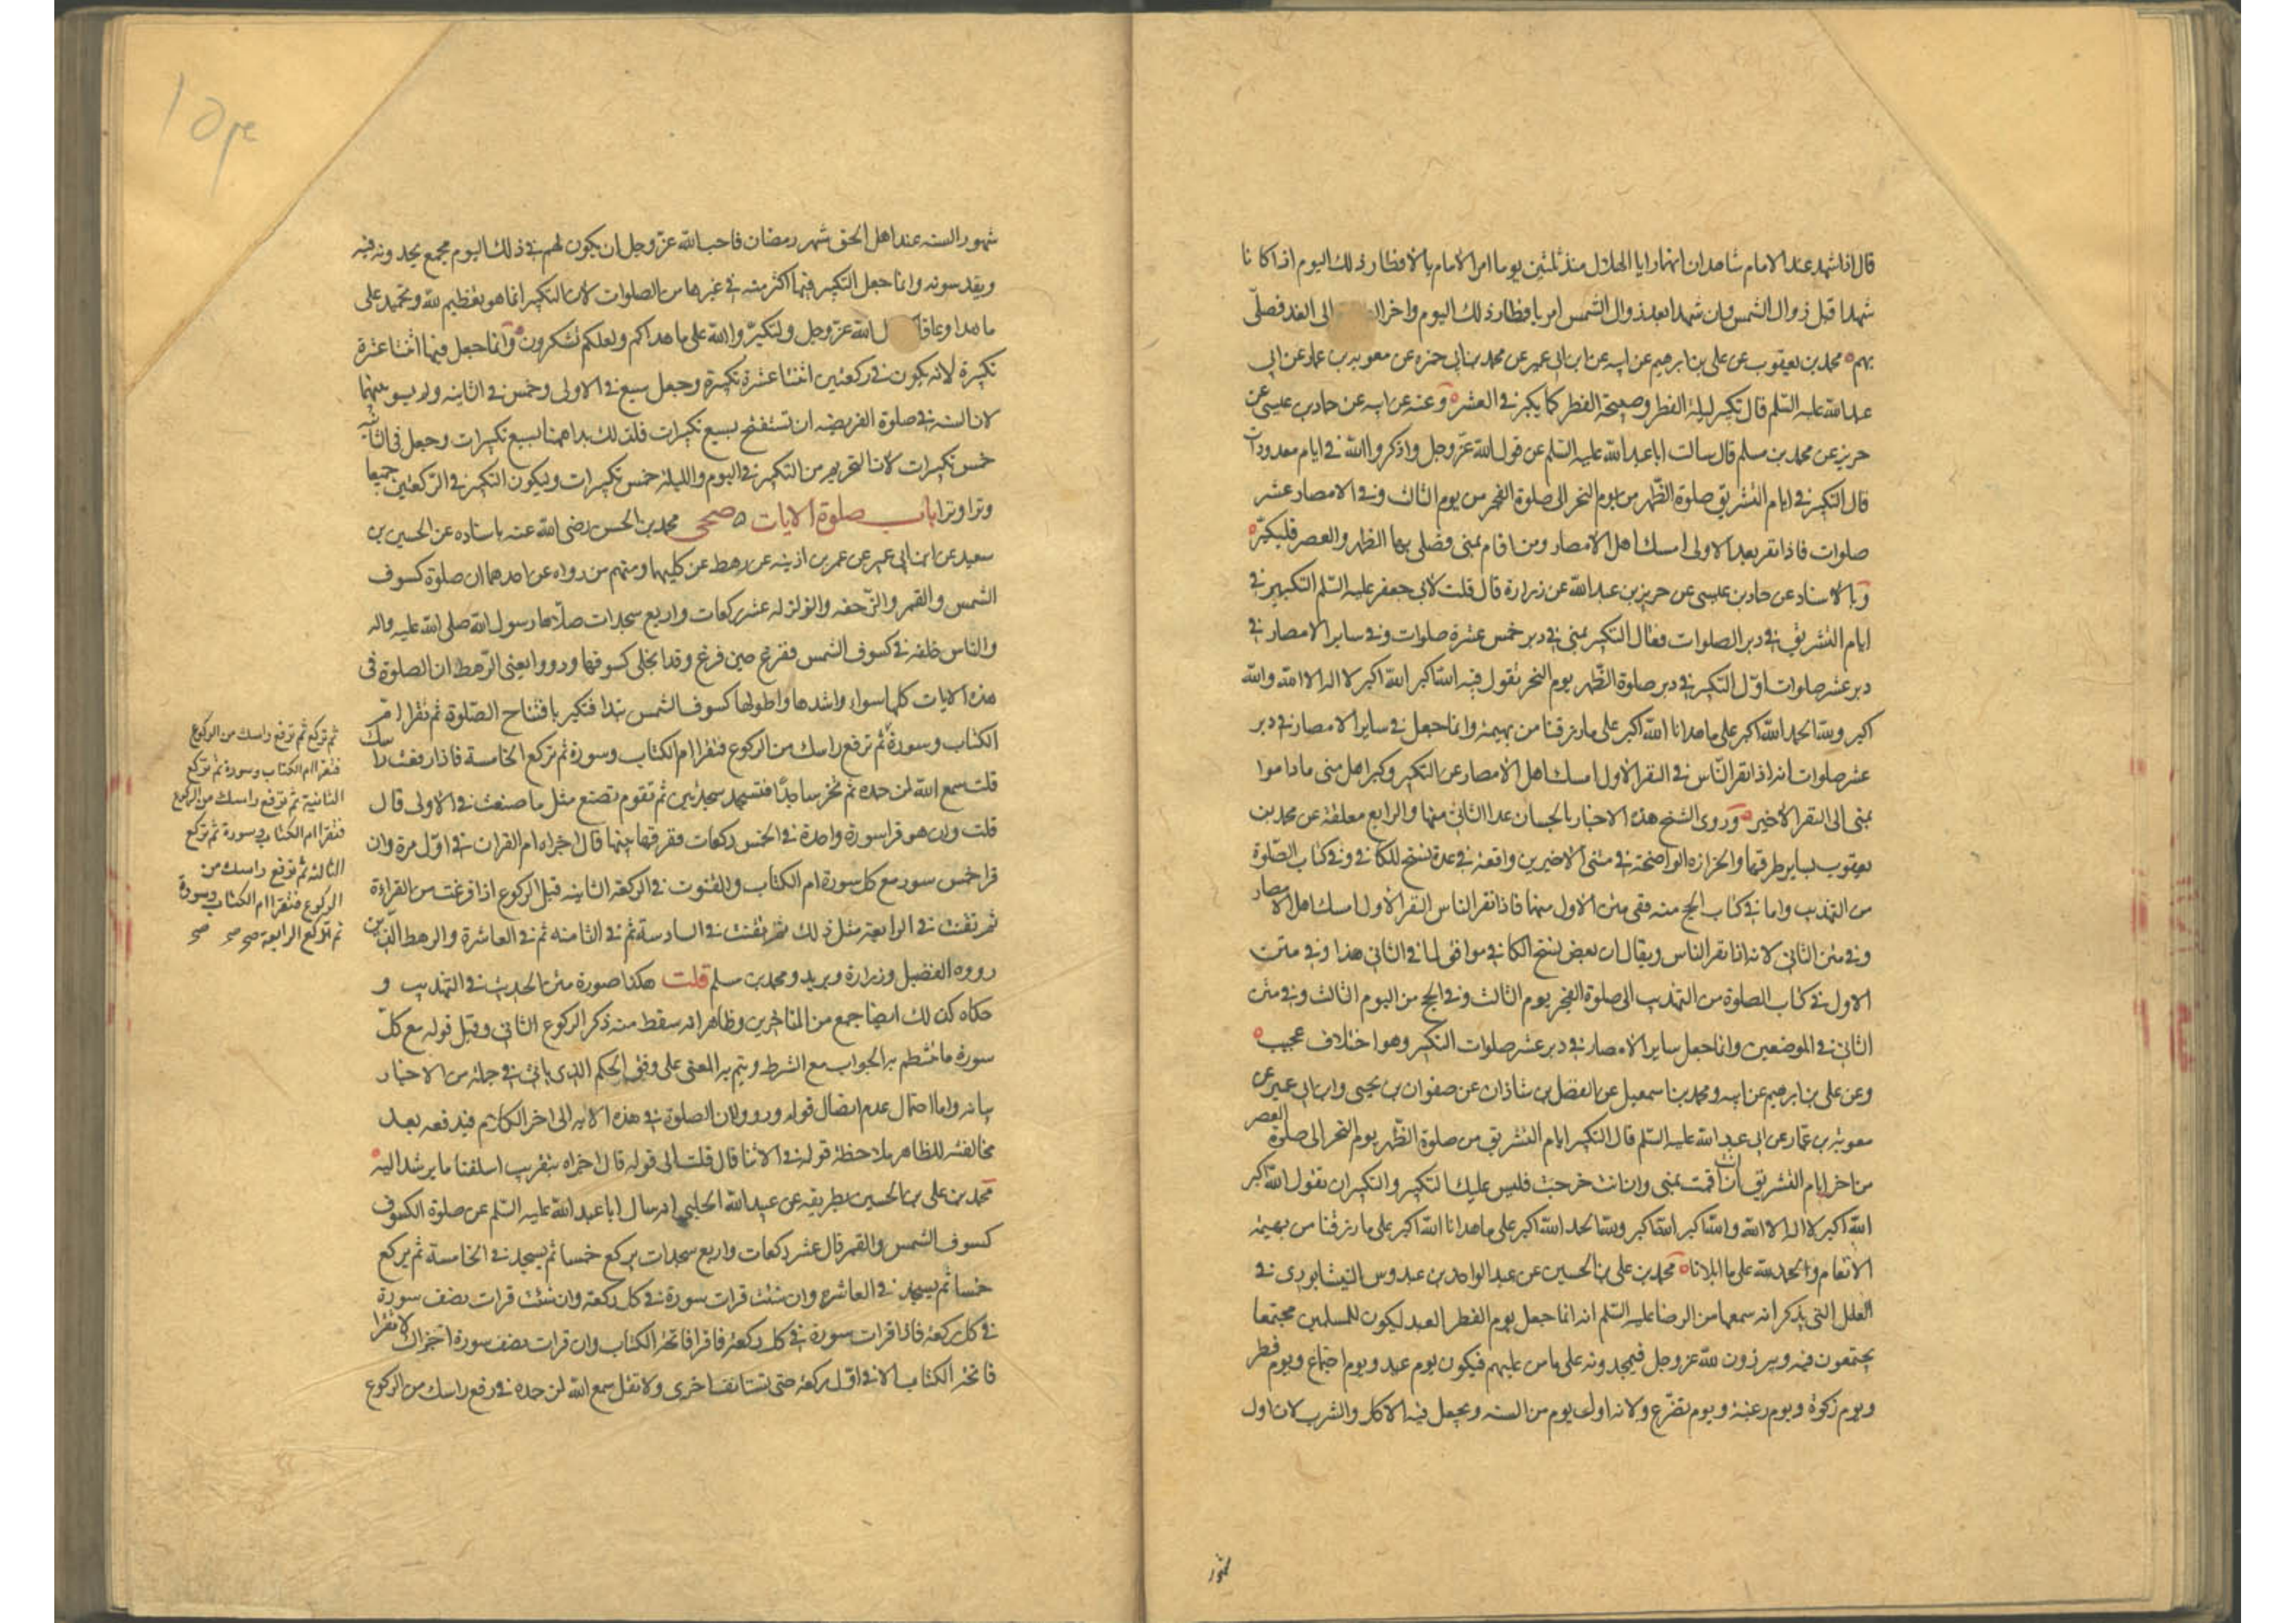 قال اذا شهد عند الامام شاهدان انهما رايا الهلال منذ ثلثين يوما امر الامام بالافطار ذلك اليوم اذا كانا
شهدا قبل زوال الشمس وان شهدا بعد زوال الشمس امر بافطار ذلك اليوم واخر الى الغد فصلى
بهم محمد بن يعقوب عن على بن ابرهيم عن ابيه عن ابن ابى عمير عن محمد بن ابى حمزه عن معويه بن عمار عن ابى
عبد الله عليه السلم قال تكبر ليلة الفطر وصبيحة الفطر كما يكبر فى العشر وعنه عن ابيه عن حماد بن عيسى عن
حريز عن محمد بن مسلم قال سالت ابا عبد الله عليه السلم عن قول الله عز وجل واذكروا الله فى ايام معدودات
قال التكبير فى ايام التشريق صلوة الظهر من يوم النحر الى صلوة الفجر من يوم الثالث وفى الامصار عشر
صلوات فاذا نفر بعد الاولى امسك اهل الامصار ومن اقام بمنى فصلى بها الظهر والعصر فليكبر
وبالاسناد عن حماد بن عيسى عن حريز بن عبد الله عن زرارة قال قلت لابى جعفر عليه السلم التكبير فى
ايام التشريق فى دبر الصلوات فقال التكبير بمنى فى دبر خمس عشرة صلوات وفى ساير الامصار فى
دبر عشر صلوات اول التكبير فى دبر صلوة الظهر يوم النحر تقول فيه الله اكبر الله اكبر لا اله الا الله والله
اكبر ولله الحمد الله اكبر على ما هدانا الله اكبر على ما رزقنا من بهيمة وانما جعل فى ساير الامصار فى دبر
عشر صلوات انه اذا نفر الناس فى النفر الاول امسك اهل الامصار عن التكبير وكبر اهل منى ما داموا
بمنى الى النفر الاخير وروى الشيخ هذه الاخبار بالحسان عدا الثانى منها والرابع معلقة عن محمد بن
يعقوب بساير طرقها والحزازه الواضحة فى متنى الاخيرين واقعة فى عدة نسخ للكافى وفى كتاب الصلوة
من التهذيب واما فى كتاب الحج منه ففى متن الاول منهما فاذا نفر الناس النفر الاول امسك اهل الامصار
وفى متن الثانى لانه اذا نفر الناس ويقال ان بعض نسخ الكافى موافق لما فى الثانى هذا وفى متن
الاول فى كتاب الصلوة من التهذيب الى صلوة الفجر يوم الثالث وفى الحج من اليوم الثالث وفى متن
الثانى فى الموضعين وانما جعل ساير الامصار فى دبر عشر صلوات التكبير وهو اختلاف عجيب
وعن على بن ابرهيم عن ابيه ومحمد بن اسمعيل عن الفضل بن شاذان عن صفوان بن يحيى وابن ابى عمير عن
معوية بن عمار عن ابى عبد الله عليه السلم قال التكبير ايام التشريق من صلوة الظهر يوم النحر الى صلوة العصر
من اخر ايام التشريق ان انت اقمت بمنى وان انت خرجت فليس عليك التكبير والتكبير ان تقول الله اكبر
الله اكبر لا اله الا الله والله اكبر الله اكبر ولله الحمد الله اكبر على ما هدانا الله اكبر على ما رزقنا من بهيمة
الانعام والحمد لله على ما ابلانا محمد بن على بن الحسين عن عبد الواحد بن عبدوس النيشابورى فى
العلل التى يذكر انه سمعها من الرضا عليه السلم انه انما جعل يوم الفطر العيد ليكون للمسلمين مجتمعا
يجتمعون فيه ويبرزون لله عز وجل فيمجدونه على ما من عليهم فيكون يوم عيد ويوم اجتماع ويوم فطر
ويوم زكوة ويوم رغبة ويوم تضرع ولانه اول يوم من السنه ويجعل فيه الاكل والشرب لان اول
شهور
شهور السنه عند اهل الحق شهر رمضان فاحب الله عز وجل ان يكون لهم فى ذلك اليوم مجمع يحمدونه فيه
ويقدسونه وانما جعل التكبير فيها اكثر منه فى غيرها من الصلوات لان التكبير انما هو تعظيم لله وتحميد على
ما هدا وعافا ل الله عز وجل ولتكبروا الله على ما هداكم ولعلكم تشكرون وانما جعل فيها اثنتا عشرة
تكبيرة لانه يكون فى ركعتين اثنتا عشرة تكبيرة وجعل سبع فى الاولى وخمس فى الثانيه ولم يسو بينهما
لان السنه فى صلوة الفريضه ان تستفتح بسبع تكبيرات فلذلك بدا ههنا بسبع تكبيرات وجعل فى الثانيه
خمس تكبيرات لان التحريم من التكبير فى اليوم والليلة خمس تكبيرات وليكون التكبير فى الركعتين جميعا
وترا وترا باب صلوة الايات صحى محمد بن الحسن رضى الله عنه باسناده عن الحسين بن
سعيد عن ابن ابى عمير عن عمر بن اذينه عن رهط عن كليهما ومنهم من رواه عن احدهما ان صلوة كسوف
الشمس والقمر والرجفه والزلزله عشر ركعات واربع سجدات صلاها رسول الله صلى الله عليه واله
والناس خلفه فى كسوف الشمس ففرغ حين فرغ وقد انجلى كسوفها ورووا يعنى الرهط ان الصلوة فى
هذه الايات كلها سواء واشدها واطولها كسوف الشمس تبدا فتكبر بافتتاح الصلوة ثم تقرا ام
الكتاب وسورة ثم ترفع راسك من الركوع فتقرا ام الكتاب وسورة ثم تركع الخامسة فاذا رفعت راسك
قلت سمع الله لمن حمده ثم تخر ساجدا فتسجد سجدتين ثم تقوم تصنع مثل ما صنعت فى الاولى قال
قلت وان هو قرا سورة واحدة فى الخمس ركعات ففرقها بينها قال اجزاه ام القران فى اول مرة وان
قرا خمس سور مع كل سورة ام الكتاب والقنوت فى الركعة الثانيه قبل الركوع اذا فرغت من القراءة
ثم تقنت فى الرابعة مثل ذلك ثم تقنت فى السادسة ثم فى الثامنه ثم فى العاشرة والرهط الذين
رووه الفضيل وزرارة وبريد ومحمد بن مسلم قلت هكذا صورة متن الحديث فى التهذيب و
حكاه كذلك ايضا جمع من المتاخرين وظاهر انه سقط منه ذكر الركوع الثانى وقبل قوله مع كل
سورة ما ينتظم به الجواب مع الشرط ويتم به المعنى على وفق الحكم الذى ياتى فى جملة من الاخبار
بيانه واما احتمال عدم اتصال قوله ورووا ان الصلوة فى هذه الايه الى اخر الكلام فيدفعه بعد
مخالفته للظاهر ملاحظة قوله فى الاثنا قال قلت الى قوله قال اجزاه بتقريب اسلفنا ما يرشد اليه
محمد بن على بن الحسين بطريقه عن عبيد الله الحلبى انه سال ابا عبد الله عليه السلم عن صلوة الكسوف
كسوف الشمس والقمر قال عشر ركعات واربع سجدات يركع خمسا ثم يسجد فى الخامسة ثم يركع
خمسا ثم يسجد فى العاشره وان شئت قرات سورة فى كل ركعة وان شئت قرات نصف سورة
فى كل ركعة فاذا قرات سورة فى كل ركعة فاقرا فاتحة الكتاب وان قرات نصف سورة اجزاك لا تقرا
فاتحة الكتاب الا فى اول ركعة حتى تستانف اخرى ولا تقل سمع الله لمن حمده فى رفع راسك من الركوع
ثم تركع ثم ترفع راسك من الركوع
فتقرا ام الكتاب وسورة ثم تركع
الثانية ثم ترفع راسك من الركوع
فتقرا ام الكتاب وسورة ثم تركع
الثالثه ثم ترفع راسك من
الركوع فتقرا ام الكتاب وسورة
ثم تركع الرابعة صح صح صح